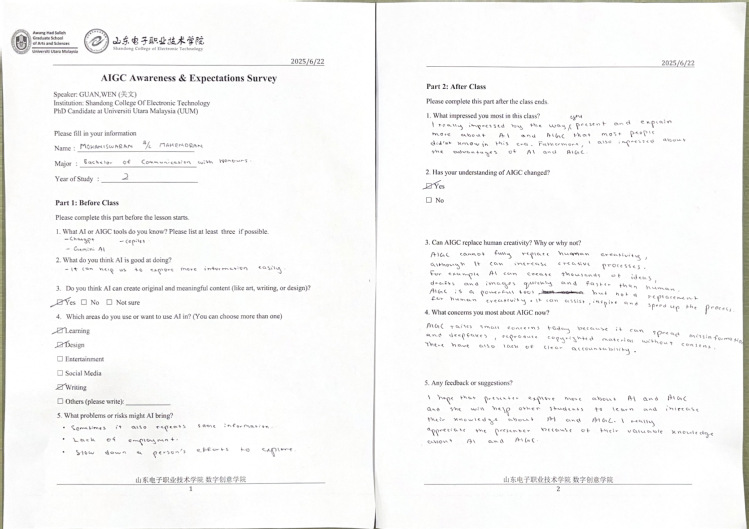 Awang Had Salleh
Graduate School
of Arts and Sciences
Universiti Utara Malaysia
山东电子职业技术学院
Shandong College of Electronic Technology
2025/6/22
AIGC Awareness & Expectations Survey
Speaker: GUAN,WEN (关文)
Institution: Shandong College Of Electronic Technology
PhD Candidate at Universiti Utara Malaysia (UUM)
Please fill in your information
Name : MOHANISWARAN A/L MAHENDRAN
Major : Bachelor of Communication with Honours.
Year of Study : 2
Part 1: Before Class
Please complete this part before the lesson starts.
1. What AI or AIGC tools do you know? Please list at least three if possible.
- Chatgpt - Copilot
- Gemini AI
2. What do you think AI is good at doing?
- It can help us to explore more information easily
3. Do you think AI can create original and meaningful content (like art, writing, or design)?
☑ Yes ☐ No ☐ Not sure
4. Which areas do you use or want to use AI in? (You can choose more than one)
☑ Learning
☑ Design
☐ Entertainment
☐ Social Media
☑ Writing
☐ Others (please write):
5. What problems or risks might AI bring?
• Sometimes it also repeats same information.
• Lack of employment.
• Slow down a person's efforts to explore.
山东电子职业技术学院 数字创意学院
1
2025/6/22
Part 2: After Class
Please complete this part after the class ends.
1. What impressed you most in this class?
I really impressed by the way you present and explain
more about AI and AIGC that most people
didn't know in this era. Futhermore, I also impressed about
the advantages of AI and AIGC
2. Has your understanding of AIGC changed?
☑ Yes
☐ No
3. Can AIGC replace human creativity? Why or why not?
AIGC cannot fully replace human creativity,
although it can increase creative processes.
For example AI can create thousands of ideas,
drafts and images quickly and faster than human.
AIGC is a powerful tool but not a replacement
for human creativity. It can assist, inspire and speed up the process.
4. What concerns you most about AIGC now?
AIGC raises small concerns today because it can spread misinformation
and deepfakes, reproduce copyrighted material without consent.
There have also lack of clear accountability.
5. Any feedback or suggestions?
I hope that presenter explore more about AI and AIGC
and she will help other students to learn and increase
their knowledge about AI and AIGC. I really
appreciate the presenter because of their valuable knowledge
about AI and AIGC.
山东电子职业技术学院 数字创意学院
2